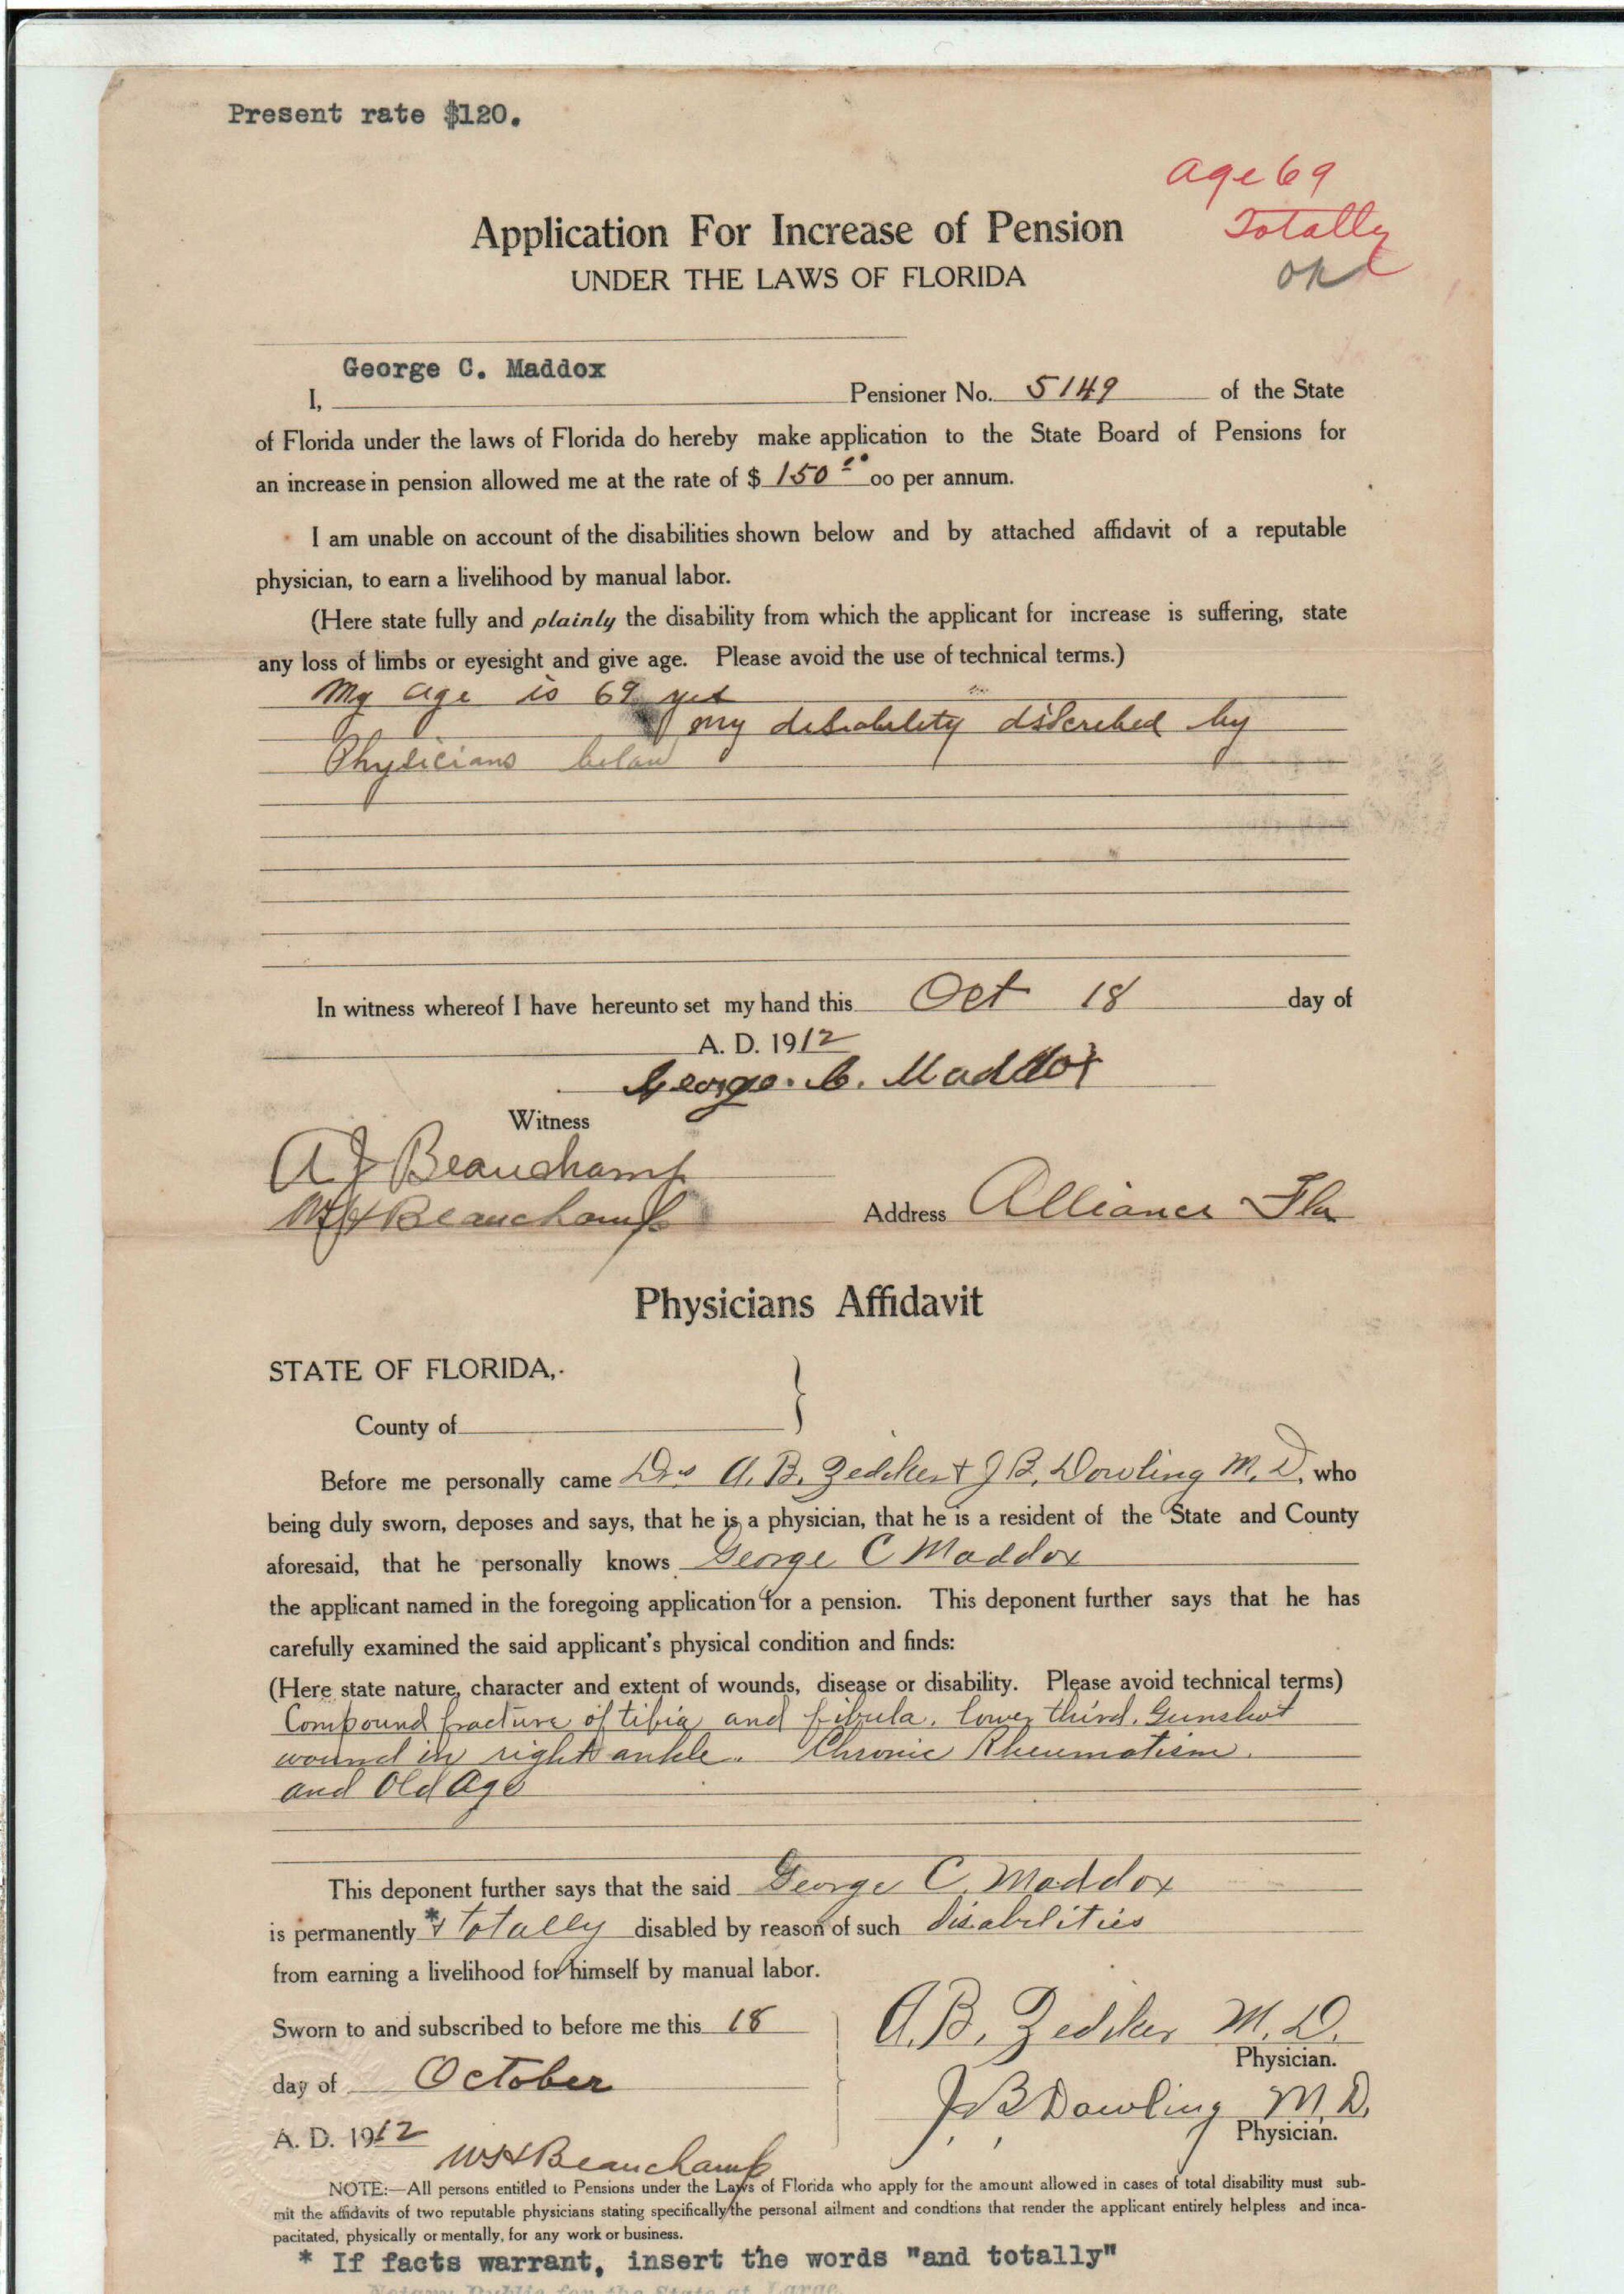 Present rate $120.
age 69
Totally
OK
Application For Increase of Pension
UNDER THE LAWS OF FLORIDA
George C. Maddox
I, Pensioner No. 5149 of the State
of Florida under the laws of Florida do hereby make application to the State Board of Pensions for
an increase in pension allowed me at the rate of $ 150 00 oo per annum.
I am unable on account of the disabilities shown below and by attached affidavit of a reputable
physician, to earn a livelihood by manual labor.
(Here state fully and plainly the disability from which the applicant for increase is suffering, state
any loss of limbs or eyesight and give age. Please avoid the use of technical terms.)
My age is 69
my disability discribed by
Physicians below
In witness whereof I have hereunto set my hand this Oct 18 day of
A. D. 1912
George. C. Maddox
Witness
A J Beauchamp
W H Beauchamp
Address Alliance Fla
Physicians Affidavit
STATE OF FLORIDA,
County of
Before me personally came Drs A. B. Zedcker & J B. Dowling M. D, who
being duly sworn, deposes and says, that he is a physician, that he is a resident of the State and County
aforesaid, that he personally knows George C Maddox
the applicant named in the foregoing application for a pension. This deponent further says that he has
carefully examined the said applicant's physical condition and finds:
(Here state nature, character and extent of wounds, disease or disability. Please avoid technical terms)
Compound fracture of tibia and fibula. lower third. Gunshot
wound in right ankle. Chronic Rheumatism.
and Old Age
This deponent further says that the said George C. Maddox
is permanently *& totally disabled by reason of such disabilities
from earning a livelihood for himself by manual labor.
Sworn to and subscribed to before me this 18
day of October
A. D. 1912
A. B. Zedcker M. D.
Physician.
J B Dowling M. D.
Physician.
W H Beauchamp
NOTE:—All persons entitled to Pensions under the Laws of Florida who apply for the amount allowed in cases of total disability must sub-
mit the affidavits of two reputable physicians stating specifically the personal ailment and condtions that render the applicant entirely helpless and inca-
pacitated, physically or mentally, for any work or business.
* If facts warrant, insert the words "and totally"
Notary Public for the State at Large